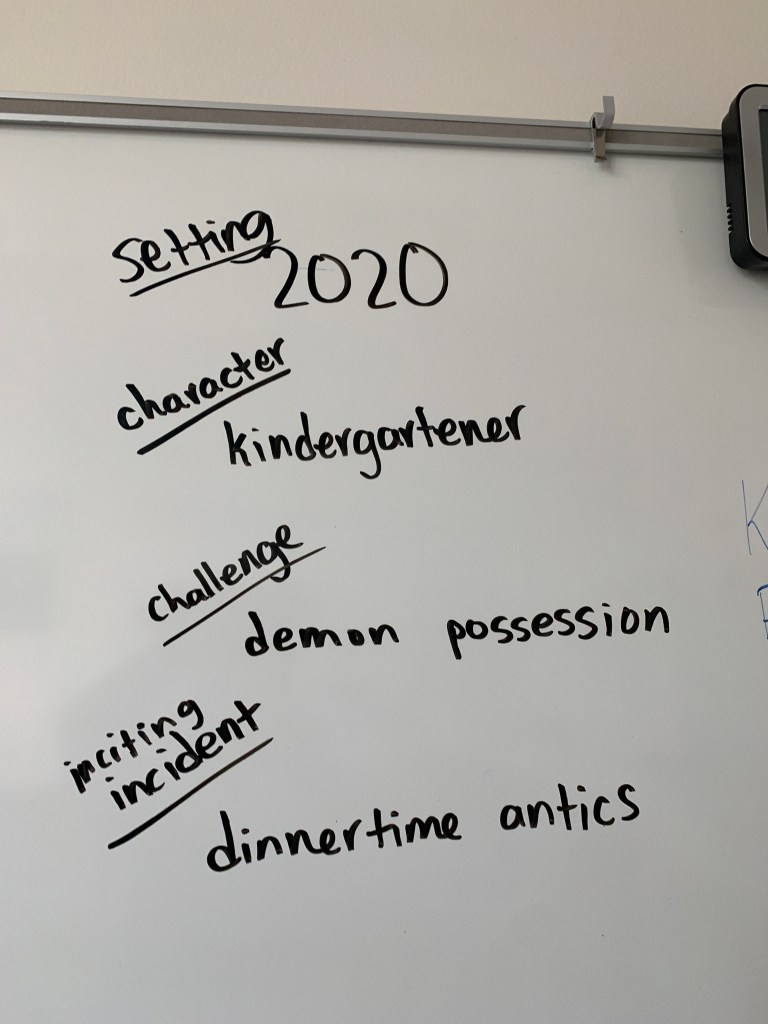 setting
2020
character
kindergartener
challenge
demon possession
inciting
incident
dinnertime antics
K